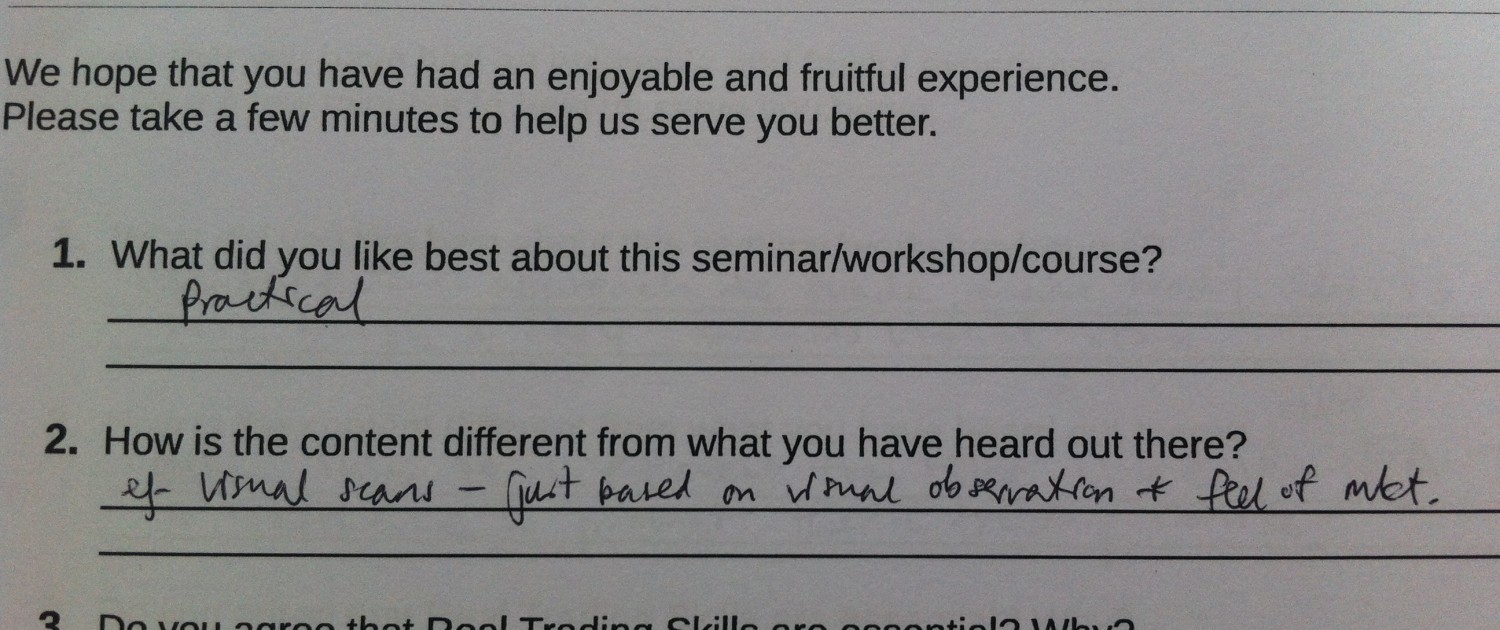 We hope that you have had an enjoyable and fruitful experience.
Please take a few minutes to help us serve you better.
1. What did you like best about this seminar/workshop/course?
Practical
2. How is the content different from what you have heard out there?
eg- visual scans - just based on visual observation + feel of mkt.
3. Do you agree that Real Trading Skills are essential? Why?